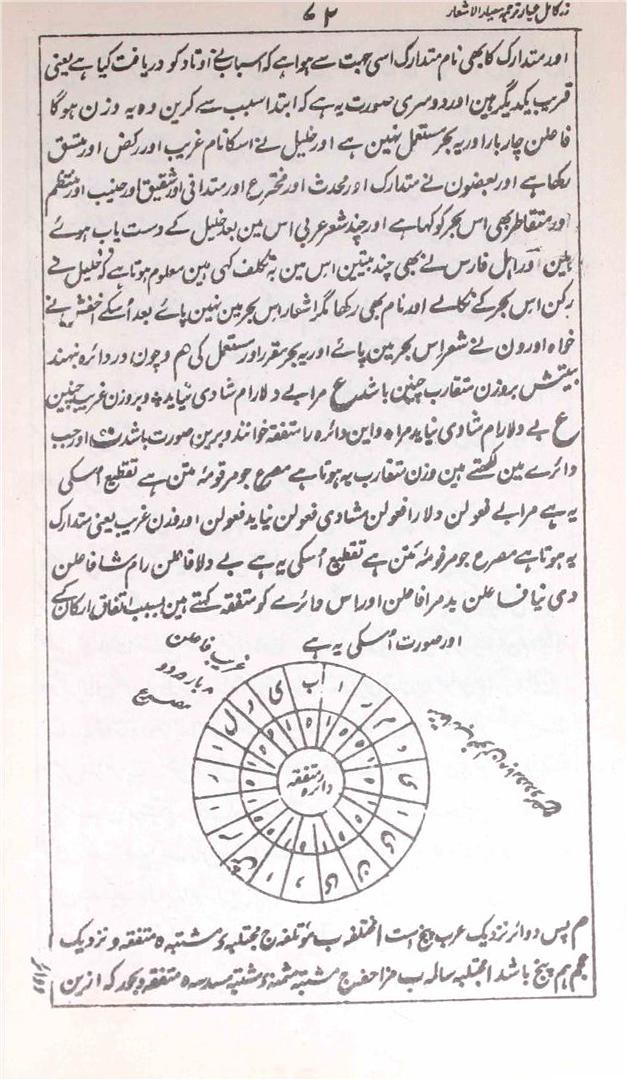 زر کامل عیار ترجمہ معیار الاشعار
۷۲
اور متدارک کا بھی نام متدارک اسی جہت سے ہوا ہے کہ اسباب نے اوتاد کو دریافت کیا ہے یعنی
قریب یکدیگر ہین اور دوسری صورت یہ ہے کہ ابتدا سبب سے کرین وہ یہ وزن ہوگا
فاعلن چار بار اور یہ بحر مستعمل نہین ہے اور خلیل نے اسکا نام غریب اور رکض اور متسق
رکھا ہے اور بعضون نے متدارک اور محدث اور مخترع اور متدانی اور شقیق اور خبیب اور منتظم
اور متقاطر بھی اس بحر کو کہا ہے اور چند شعر عربی اس مین بعد خلیل کے دست یاب ہوئے
ہین اور اہل فارس نے بھی چند بیتین اس مین بہ تکلف کہی ہین معلوم ہوتا ہے کہ خلیل نے
رکن اس بحر کے نکالے اور نام بھی رکھا مگر اشعار اس بحر مین نہین پائے بعد اُسکے اخفش نے
خواہ اورون نے شعر اس بحر مین پائے اور یہ بحر مقرر اور مستعمل کی ھم و چون در دائرہ نہند
بیتش بروزن متقارب چنین باشد ع مرا بے دلارام شادی نیاید و بروزن غریب چنین
ع بے دلارام شادی نیاید مرا و این دائرہ را متفقہ خوانند و برین صورت باشد ت اور جب
دائرے مین لکھتے ہین وزن متقارب یہ ہوتا ہے مصرع جو مرقومۂ متن ہے تقطیع اُسکی
یہ ہے مرا بے فعولن دلارا فعولن مشادی فعولن نیاید فعولن اور وزن غریب یعنی متدارک
یہ ہوتا ہے مصرع جو مرقومۂ متن ہے تقطیع اُسکی یہ ہے بے دلا فاعلن رام شا فاعلن
دی نیا فاعلن ید مرا فاعلن اور اس دائرے کو متفقہ کہتے ہین بسبب اتفاق ارکان کے
اور صورت اُسکی یہ ہے
غریب فاعلن
بار در دو
مصرع
دائرہ متفقہ
م پس دوائر نزدیک عرب پنج است ا مختلفہ ب مؤتلفہ ج مجتلبہ د مشتبہ ہ متفقہ و نزدیک
عجم ہم پنج باشد ا مجتلبہ سالمہ ب مزاحفہ ج مشتبہ مثمنہ د مشتبہ مسدسہ ہ متفقہ و بحور کہ ازین
دوائر